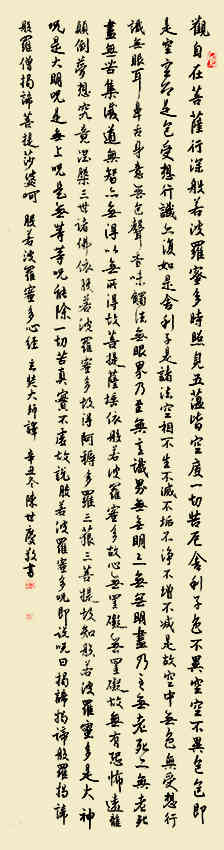 觀自在菩薩行深般若波羅蜜多時照見五蘊皆空度一切苦厄舍利子色不異空空不異色色即
是空空即是色受想行識亦復如是舍利子是諸法空相不生不滅不垢不淨不增不減是故空中無色無受想行
識無眼耳鼻舌身意無色聲香味觸法無眼界乃至無意識界無無明亦無無明盡乃至無老死亦無老死
盡無苦集滅道無智亦無得以無所得故菩提薩埵依般若波羅蜜多故心無罣礙無罣礙故無有恐怖遠離
顛倒夢想究竟涅槃三世諸佛依般若波羅蜜多故得阿耨多羅三藐三菩提故知般若波羅蜜多是大神
咒是大明咒是無上咒是無等等咒能除一切苦真實不虛故說般若波羅蜜多咒即說咒曰揭諦揭諦般羅揭諦
般羅僧揭諦菩提莎婆呵 般若波羅蜜多心經 玄奘大師譯 辛丑冬陳世慶敬書